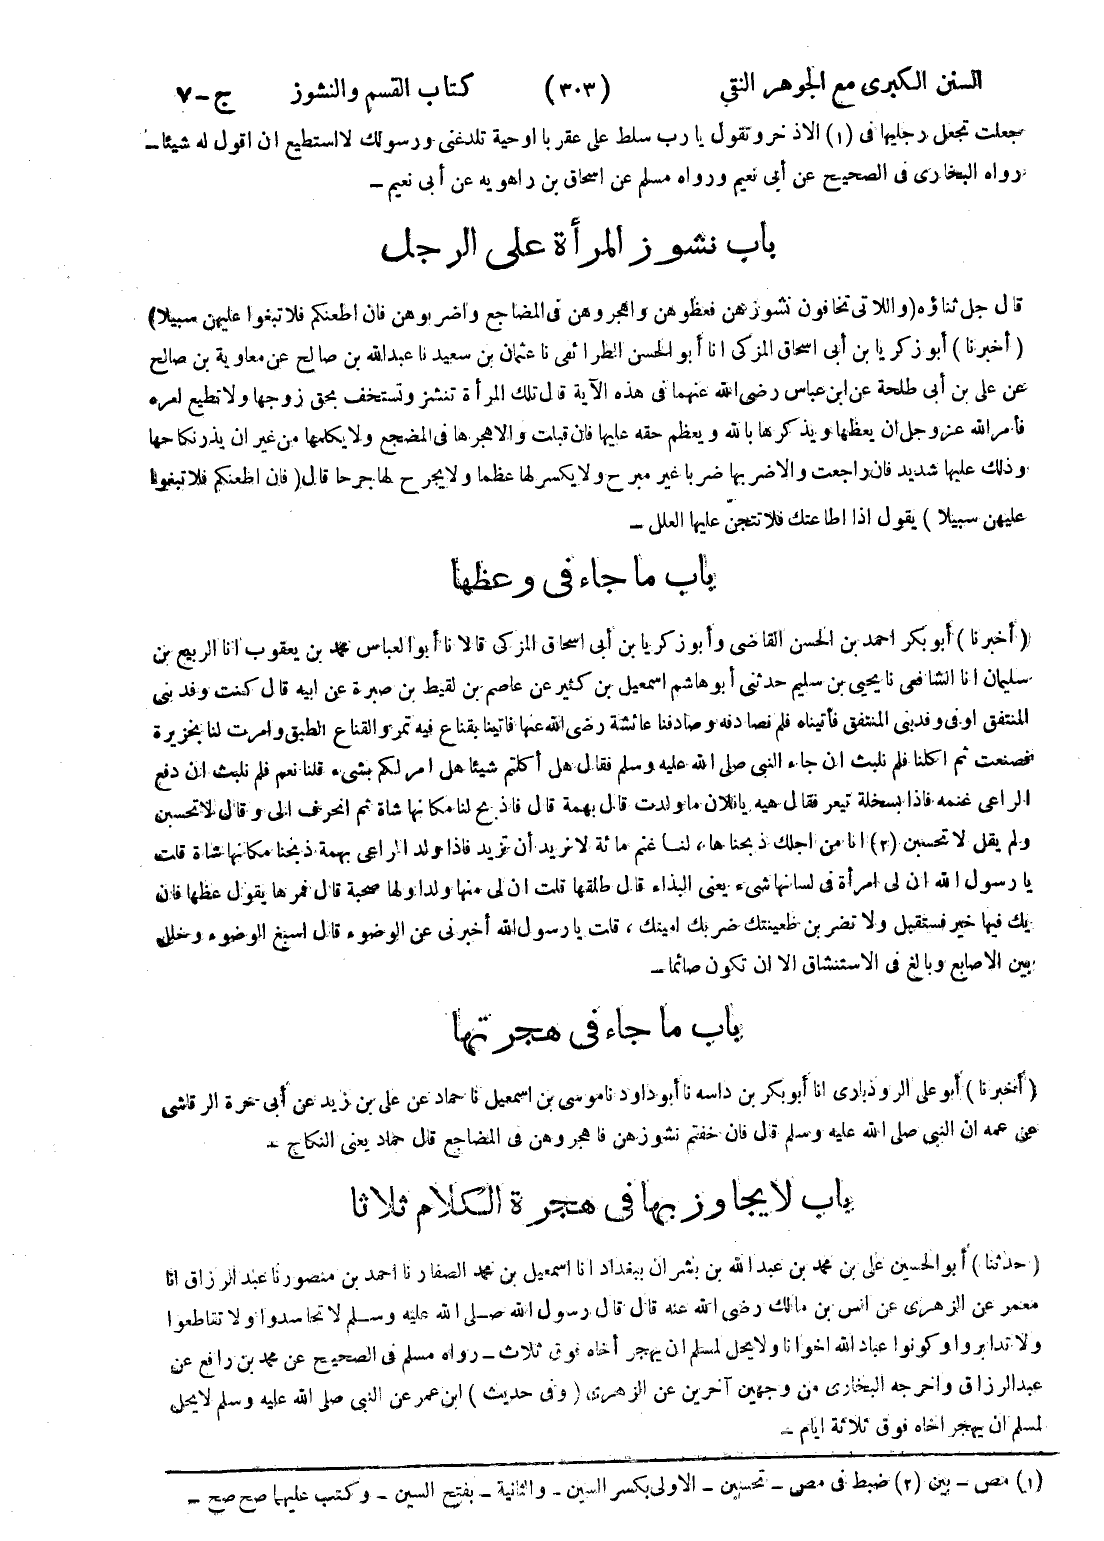 السنن الكبرى مع الجوهر النقي (٣٠٣) كتاب القسم والنشوز ج-٧
جعلت تجعل رجليها فى (١) الاذخر وتقول يا رب سلط على عقربا اوحية تلدغنى ورسولك لا استطيع ان اقول له شيئا ــ
رواه البخارى فى الصحيح عن أبى نعيم ورواه مسلم عن اسحاق بن راهويه عن أبى نعيم ــ
باب نشوز المرأة على الرجل
قال جل ثناؤه (واللاتى تخافون نشوزهن فعظوهن واهجروهن فى المضاجع واضربوهن فان اطعنكم فلا تبغوا عليهن سبيلا)
(أخبرنا) أبو زكريا بن أبى اسحاق المزكى انا أبو الحسن الطرائفى نا عثمان بن سعيد نا عبدالله بن صالح عن معاوية بن صالح
عن على بن أبى طلحة عن ابن عباس رضى الله عنهما فى هذه الآية قال تلك المرأة تنشز وتستخف بحق زوجها ولا تطيع امره
فأمر الله عز وجل ان يعظها ويذكرها بالله ويعظم حقه عليها فان قبلت والا هجرها فى المضجع ولا يكلمها من غير ان يذر نكاحها
وذلك عليها شديد فان راجعت والا ضربها ضربا غير مبرح ولا يكسر لها عظما ولا يجرح لها جرحا قال (فان اطعنكم فلا تبغوا
عليهن سبيلا) يقول اذا اطاعتك فلا تتجنّ عليها العلل ــ
باب ما جاء فى وعظها
(أخبرنا) أبو بكر احمد بن الحسن القاضى وأبو زكريا بن أبى اسحاق المزكى قالا نا أبو العباس محمد بن يعقوب انا الربيع بن
سليمان انا الشافعى نا يحيى بن سليم حدثنى أبو هاشم اسمعيل بن كثير عن عاصم بن لقيط بن صبرة عن ابيه قال كنت وفد بنى
المنتفق اوفى وفد بنى المنتفق فأتيناه فلم نصادفه وصادفنا عائشة رضى الله عنها فاتينا بقناع فيه تمر والقناع الطبق وامرت لنا بخزيرة
فصنعت ثم اكلنا فلم نلبث ان جاء النبى صلى الله عليه وسلم فقال هل أكلتم شيئا هل امر لكم بشىء قلنا نعم فلم نلبث ان دفع
الراعى غنمه فاذا بسخلة تيعر فقال هيه يا فلان ما ولدت قال بهمة قال فاذبح لنا مكانها شاة ثم انحرف الى وقال لا تحسبن
ولم يقل لا تحسبن (٢) انا من اجلك ذبحناها، لنا غنم مائة لا نريد أن تزيد فاذا ولد الراعى بهمة ذبحنا مكانها شاة قلت
يا رسول الله ان لى امرأة فى لسانها شىء يعنى البذاء قال طلقها قلت ان لى منها ولدا ولها صحبة قال فمرها يقول عظها فان
يك فيها خير فستقبل ولا تضربن ظعينتك ضربك اميتك، قلت يا رسول الله أخبرنى عن الوضوء قال اسبغ الوضوء وخلل
بين الاصابع وبالغ فى الاستنشاق الا ان تكون صائما ــ
باب ما جاء فى هجرتها
(أخبرنا) أبو على الروذبارى انا أبو بكر بن داسه نا أبو داود نا موسى بن اسمعيل نا حماد عن على بن زيد عن أبى حرة الرقاشى
عن عمه ان النبى صلى الله عليه وسلم قال فان خفتم نشوزهن فاهجروهن فى المضاجع قال حماد يعنى النكاح ــ
باب لا يجاوز بها فى هجرة الكلام ثلاثا
(حدثنا) أبو الحسين على بن محمد بن عبد الله بن بشران ببغداد انا اسمعيل بن محمد الصفار نا احمد بن منصور نا عبد الرزاق انا
معمر عن الزهرى عن انس بن مالك رضى الله عنه قال قال رسول الله صلى الله عليه وسلم لا تحاسدوا ولا تقاطعوا
ولا تدابروا وكونوا عباد الله اخوانا ولا يحل لمسلم ان يهجر أخاه فوق ثلاث ــ رواه مسلم فى الصحيح عن محمد بن رافع عن
عبدالرزاق واخرجه البخارى من وجهين آخرين عن الزهرى (وفى حديث) ابن عمر عن النبى صلى الله عليه وسلم لا يحل
لمسلم ان يهجر اخاه فوق ثلاثة ايام ــ
(١) مص ــ بين (٢) ضبط فى مص ــ تحسبن ــ الاولى بكسر السين ــ والثانية ــ بفتح السين ــ وكتب عليها صح صح ــ